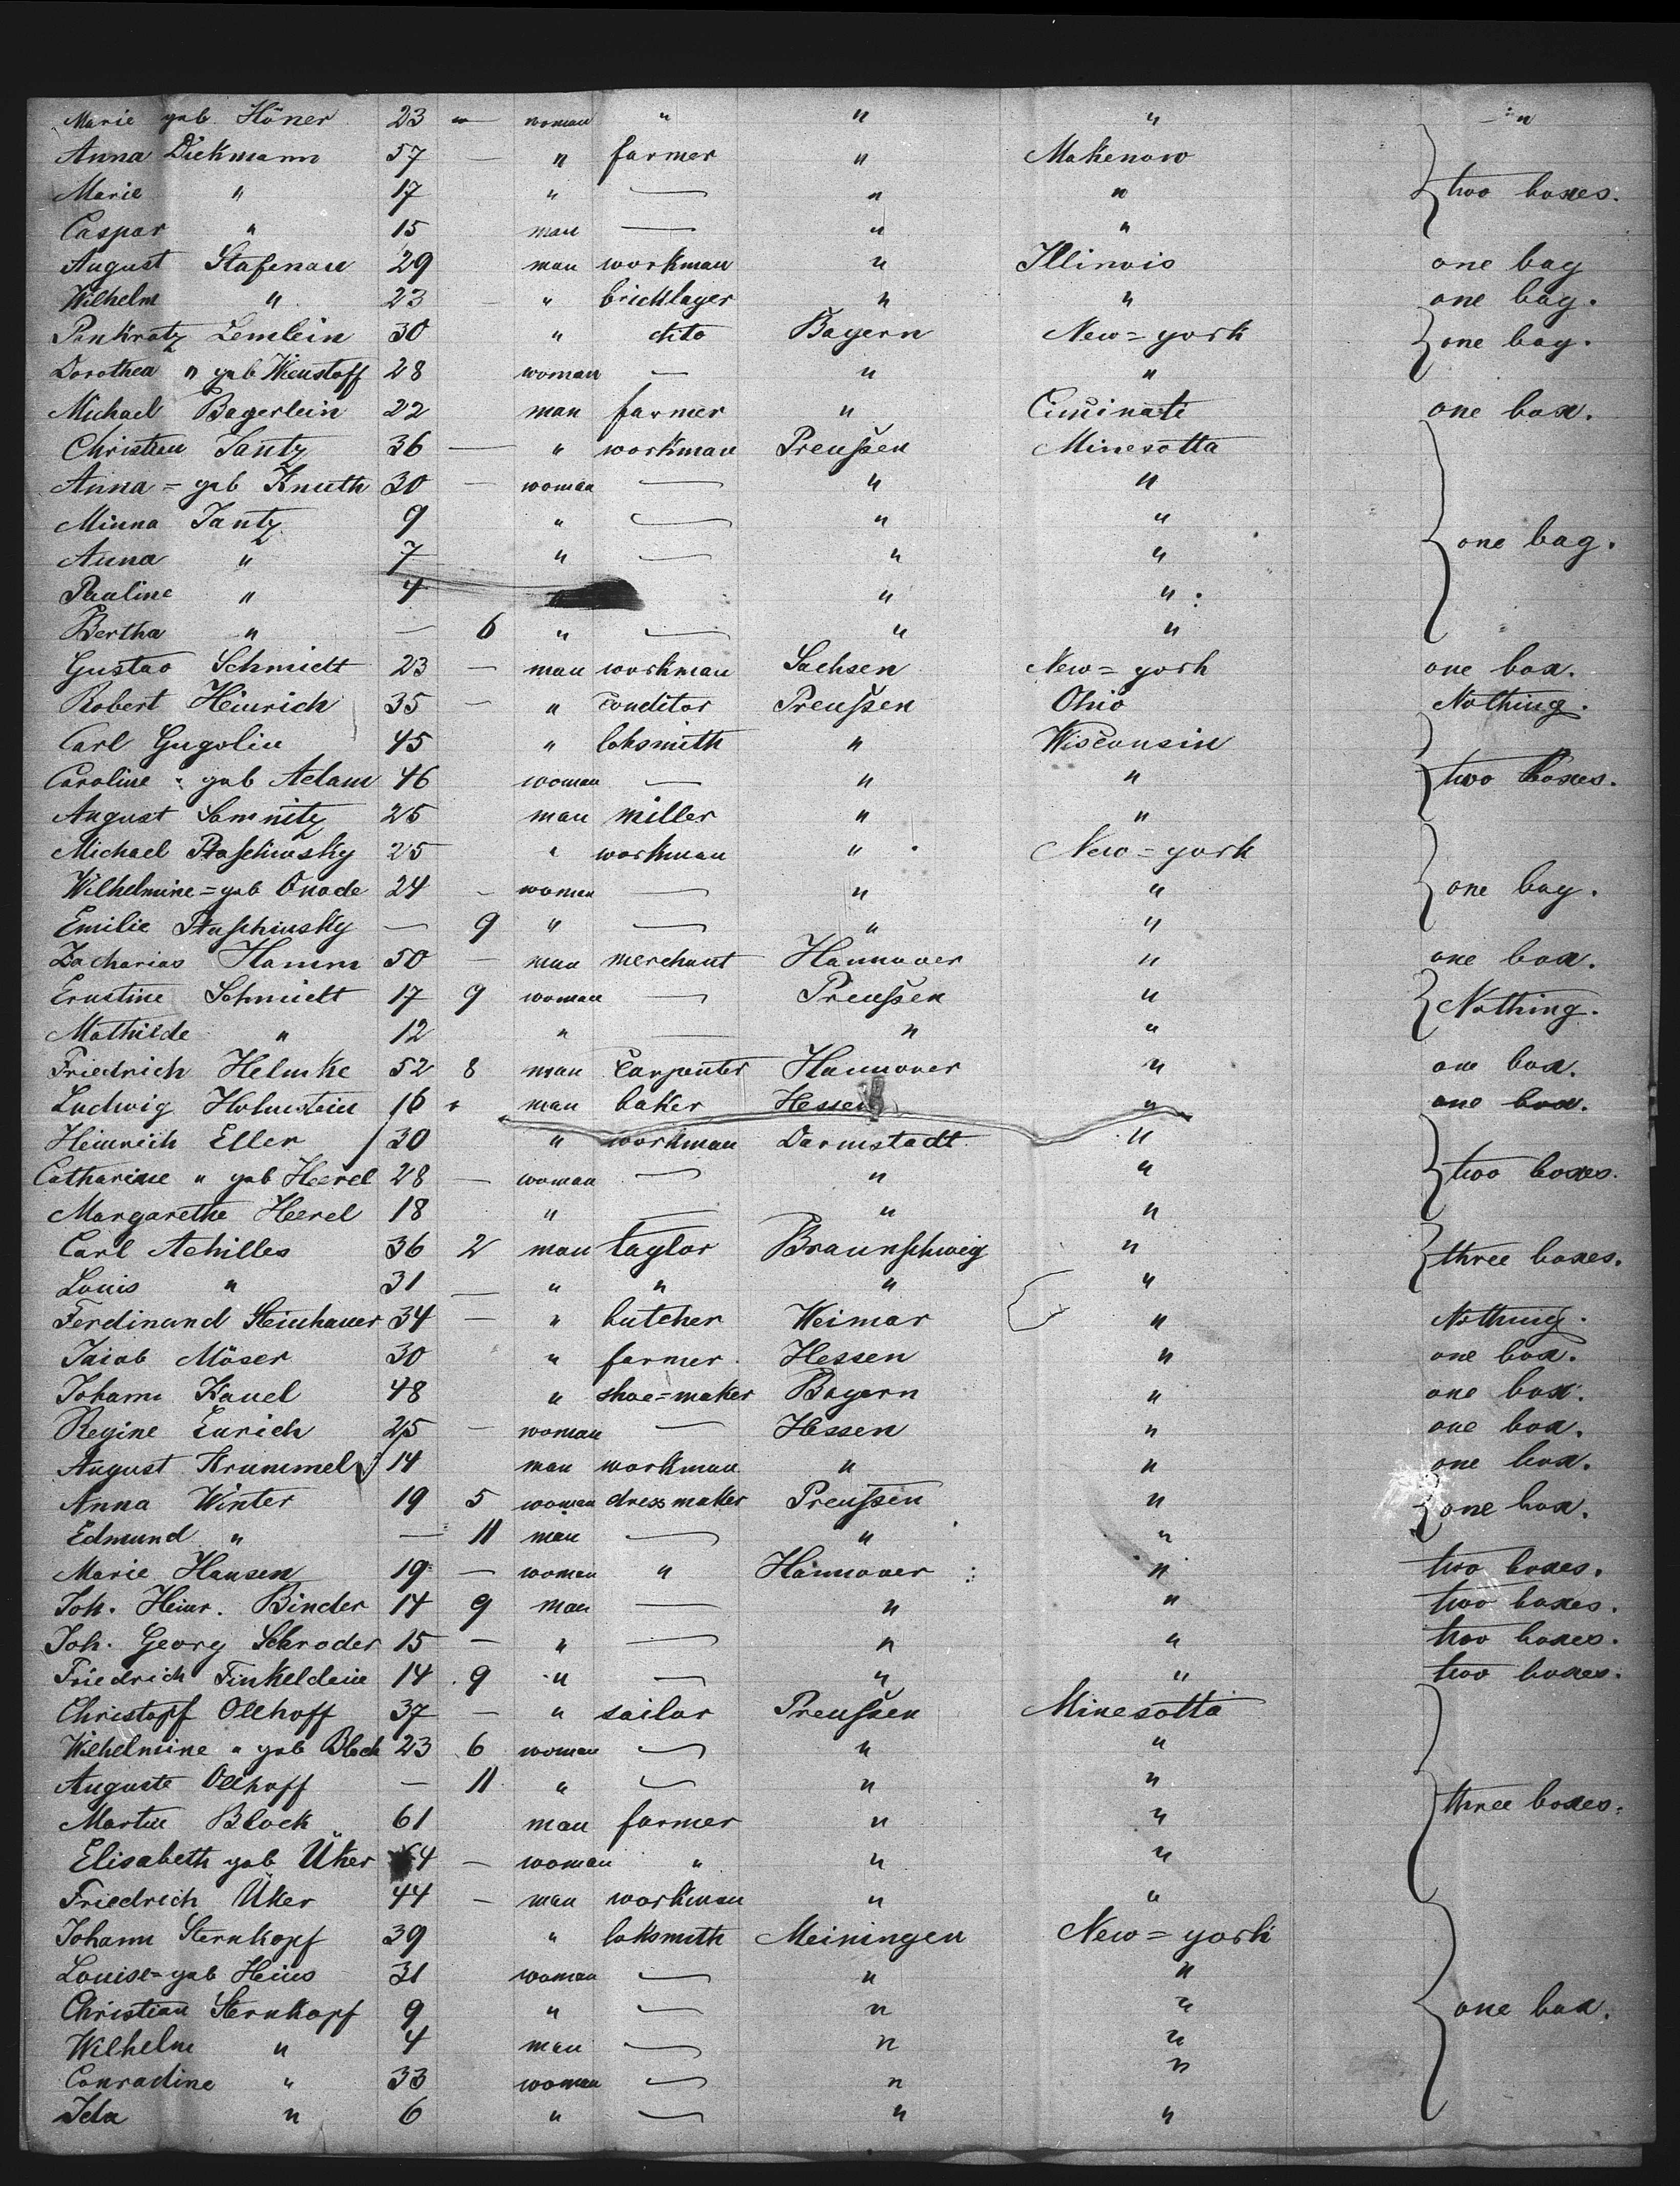 Marie geb. Höner 23 — woman " " " "
Anna Dickmann 57 — " farmer " Makenow
Marie " 17 " — " " two boxes.
Caspar " 15 man — " "
August Stafenau 29 man workman " Illinois one bag
Wilhelm " 23 — " bricklager " " one bag.
Pankratz Lemlein 30 " dito Bayern New=york one bag.
Dorothea " geb Wienstoff 28 woman — " "
Michael Bagerlein 22 man farmer " Cincinati one box.
Christian Tantz 36 — " workman Preußen Minesotta
Anna = geb Knuth 30 — woman — " "
Minna Tantz 9 " — " "
Anna " 7 " — " " one bag.
Pauline " 4 " " "
Bertha " — 6 " — " "
Gustav Schmidt 23 — man workman Sachsen New=york one box.
Robert Heinrich 35 — " conditor Preußen Ohio Nothing.
Carl Gugolin 45 " loksmith " Wisconsin
Caroline " geb Adam 46 woman — " " two boxes.
August Somnitz 25 man miller " "
Michael 25 " workman " New=york
Wilhelmine = geb Onade 24 — woman — " " one bag.
Emilie — 9 " — " "
Zacharias Hamm 50 — man merchant Hannover " one box.
Ernstine Schmidt 17 9 woman — Preußen " Nothing.
Mathilde " 12 " — " "
Friedrich Helmke 52 8 man carpenter Hannover " one box.
Ludwig Holmstein 16 " man baker Hessen " one box.
Heinrich Eller 30 " workman Darmstadt "
Catharine " geb Heerel 28 — woman — " " two boxes.
Margarethe Heerel 18 " — " "
Carl Achilles 36 2 man taylor Braunschweig " three boxes.
Louis " 31 — " " " "
Ferdinand Steinhauer 34 — " butcher Weimar " Nothing.
Jaiob Möser 30 " farmer Hessen " one box.
Johann Kauel 48 " shoe=maker Bayern " one box.
Regine Eurich 25 — woman — Hessen " one box.
August Krummel 14 man workman " " one box.
Anna Winter 19 5 woman dressmaker Preußen " one box.
Edmund " — 11 man — " "
Marie Hansen 19 — woman " Hannover " two boxes.
Joh. Heinr. Binder 14 9 man — " " two boxes.
Joh. Georg Schroder 15 — " — " " two boxes.
Friedrich Finkeldeie 14 9 " — " " two boxes.
Christopf Ollhoff 37 — " sailor Preußen Minesotta
Wilhelmine " geb Block 23 6 woman — " "
Auguste Ollhoff — 11 " — " "
Martin Block 61 man farmer " " three boxes.
Elisabeth geb Üker 64 — woman " " "
Friedrich Üker 44 — man workman " "
Johann Sternkopf 39 " loksmith Meiningen New=york
Louise = geb Heins 31 woman — " "
Christian Sternkopf 9 " — " " one box.
Wilhelm " 4 man — " "
Conradine " 33 woman — " "
Ida " 6 " — " "